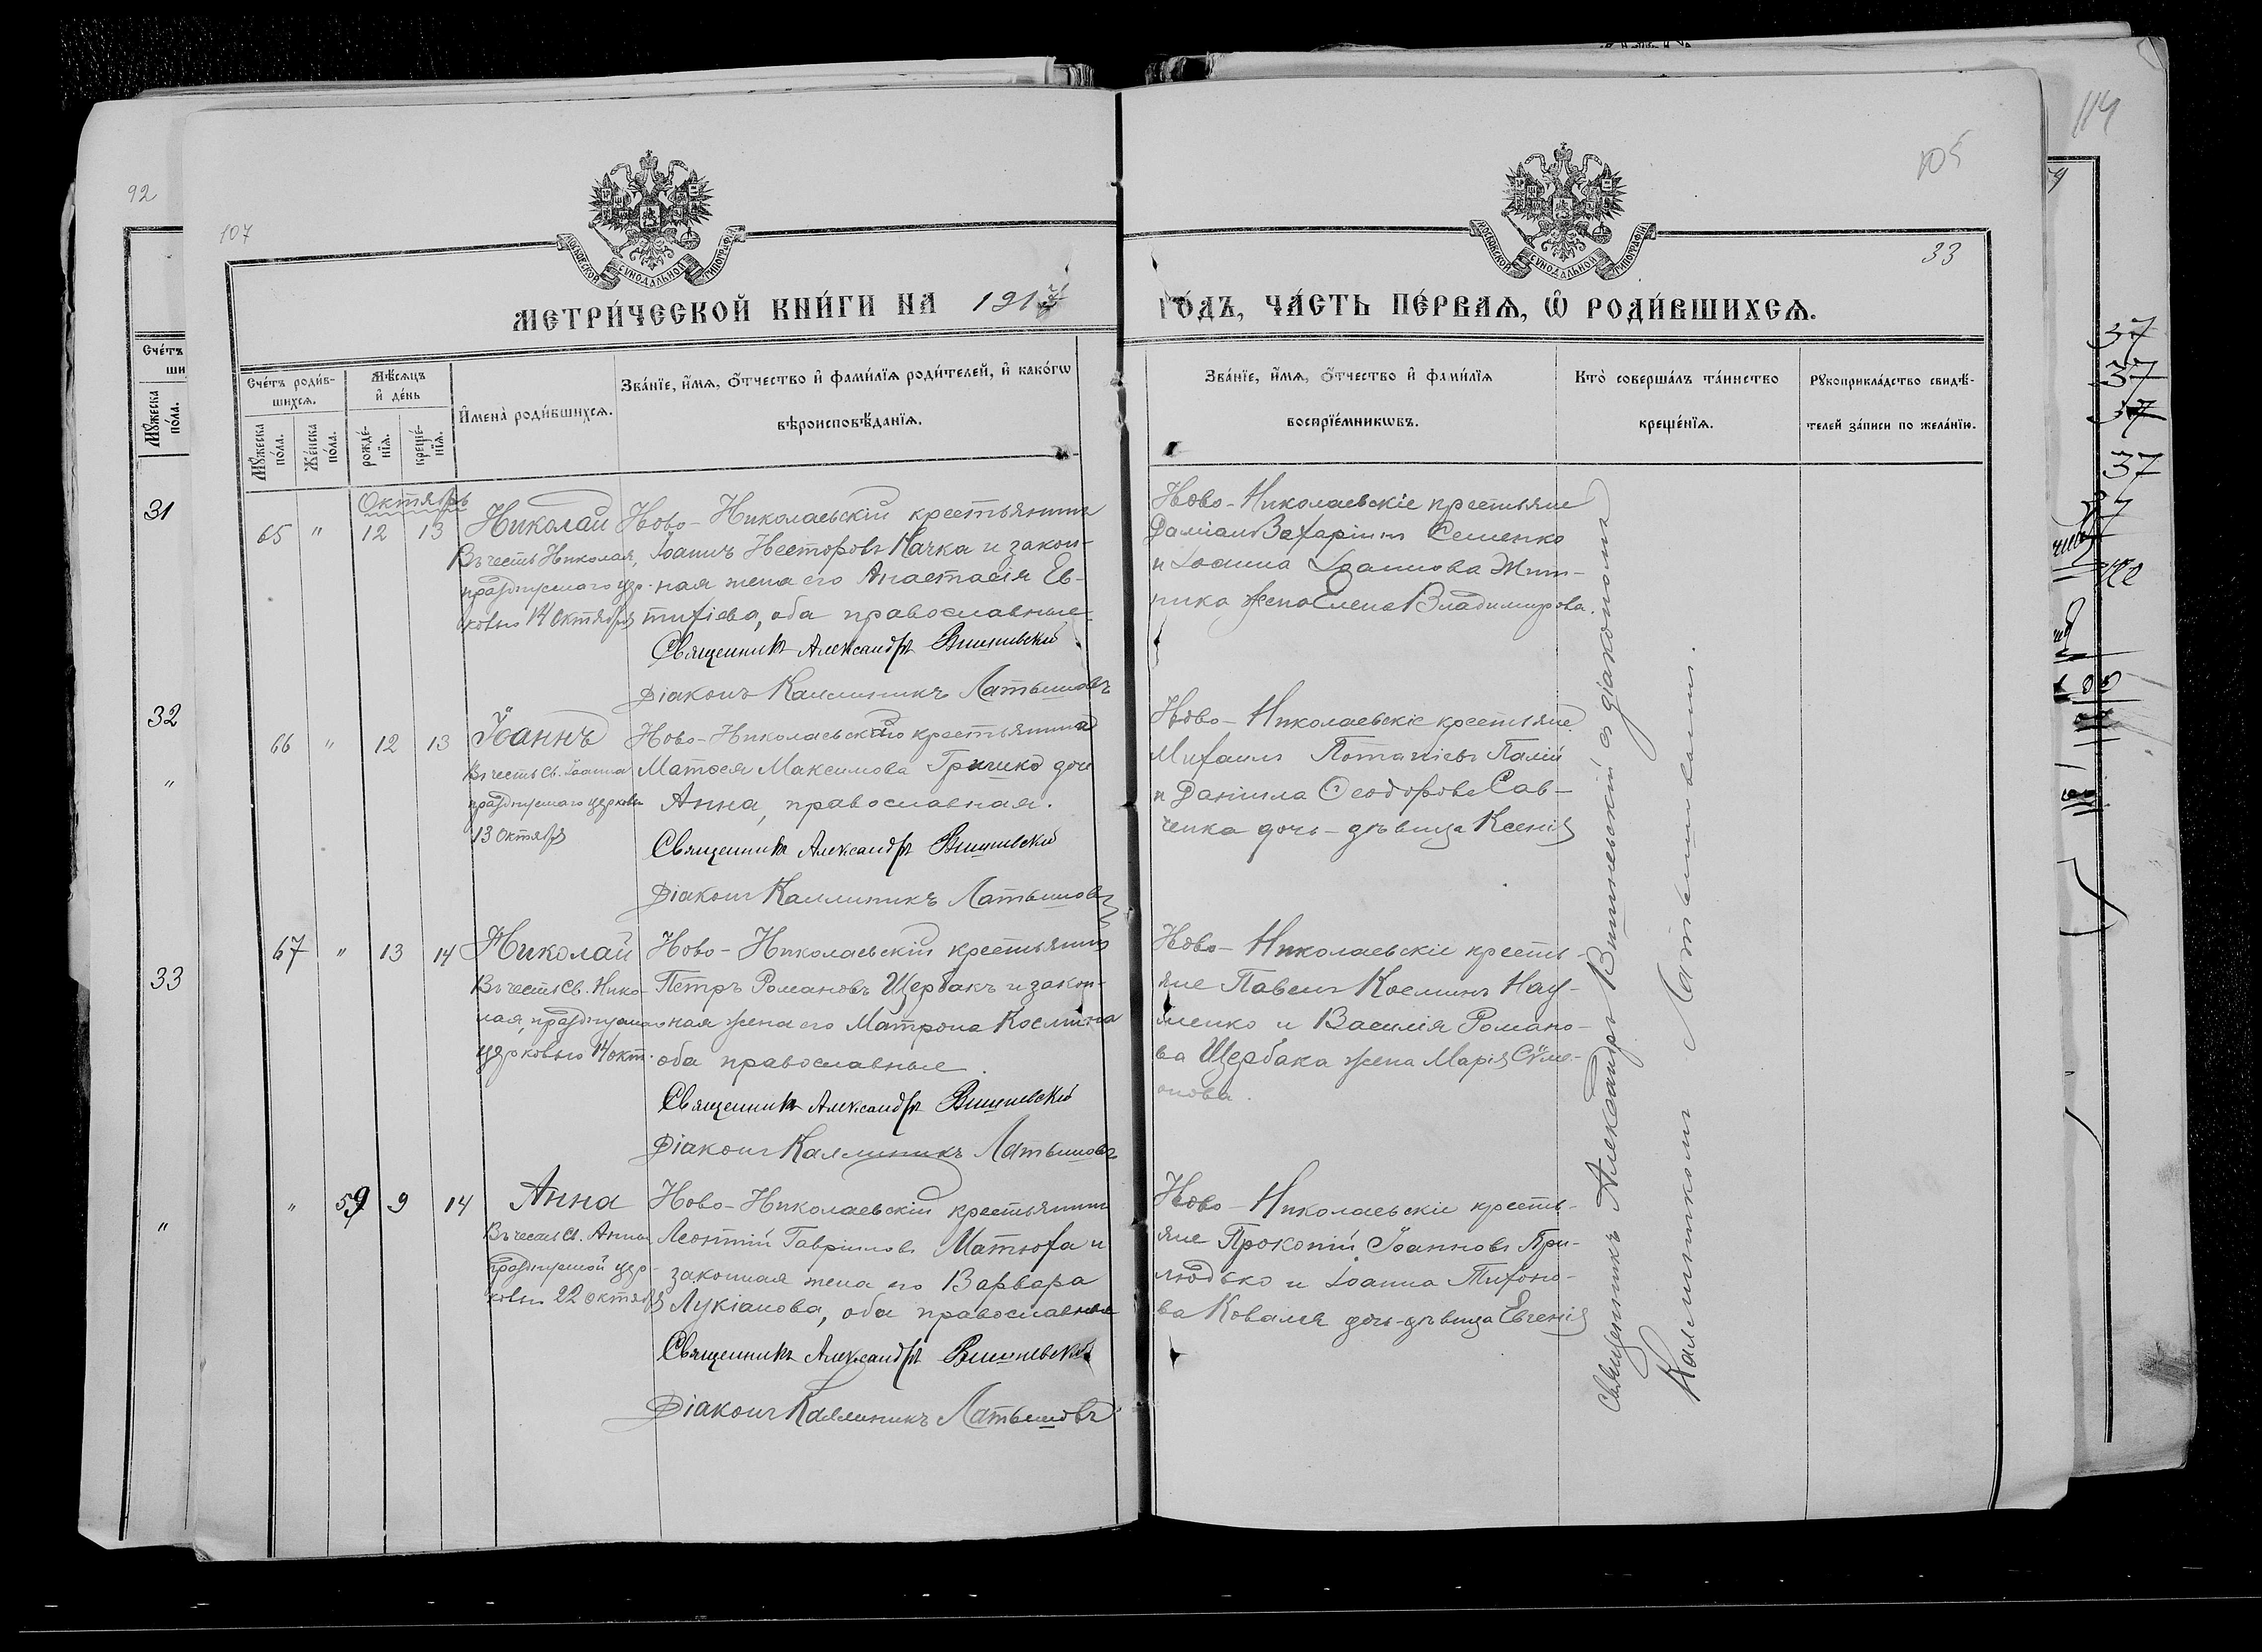 92
107
105
114
33
МОСКОВСКОЙ СѴНОДАЛЬНОЙ ТИПОГРАФІИ
МОСКОВСКОЙ СѴНОДАЛЬНОЙ ТИПОГРАФІИ
МЕТРИ́ЧЕСКОЙ КНИ́ГИ НА 191
ГО́ДЪ, ЧА́СТЬ ПЕ́РВАѦ, Ѡ҆ РОДИ́ВШИХСѦ.
Сче́тъ роди́в-
шихсѧ.
Мꙋ́жеска по́ла.
Же́нска по́ла.
Мѣ́сѧцъ и҆ де́нь
рожде́-нїѧ.
креще́-нїѧ.
И҆мена̀ роди́вшихсѧ.
Зва́нїе, и҆́мѧ, ѻ҆́тчество и҆ фами́лїѧ роди́телей, и҆ како́гѡ
вѣроисповѣ́данїѧ.
Зва́нїе, и҆́мѧ, ѻ҆́тчество и҆ фами́лїѧ
воспрїе́мникѡвъ.
Кто̀ соверша́лъ та́инство
креще́нїѧ.
Рꙋкоприкла́дство свидѣ́-
телей за́писи по жела́нїю.
31
32
"
33
"
Октябрь
65 " 12 13 Николай
Въ честь Николая,
празднуемаго цер-
ковью 14 Октября
Ново-Николаевскій крестьянинъ
Іоаннъ Несторовъ Качка и закон-
ная жена его Анастасія Ев-
тихіева, оба православные
Священникъ Александръ Вишневскій
Діаконъ Каллиникъ Латышовъ
Ново-Николаевскіе крестьяне
Даміанъ Захаріинъ Семенко
и Іоанна Іоаннова Жит-
ника жена Елена Владимирова.
66 " 12 13 Іоаннъ
Въ честь Св. Іоанна
празднуемаго церковью
13 Октября
Ново-Николаевскаго крестьянина
Матѳея Максимова Гричико дочь
Анна, православная.
Священникъ Александръ Вишневскій
Діаконъ Каллиникъ Латышовъ
Ново-Николаевскіе крестьяне
Михаилъ Потапіевъ Палій
и Даніила Ѳеодорова Сав-
ченка дочь-дѣвица Ксенія
67 " 13 14 Николай
Въ честь Св. Нико-
лая, празднуемаго
церковью 14 окт.
Ново-Николаевскій крестьянинъ
Петръ Романовъ Щербакъ и закон-
ная жена его Матрона Космина
оба православные.
Священникъ Александръ Вишневскій
Діаконъ Каллиникъ Латышовъ
Ново-Николаевскіе кресть-
яне Павелъ Косминъ Нау-
менко и Василія Романо-
ва Щербака жена Марія Сѵме-
онова.
" 59 9 14 Анна
Въ честь Св. Анны
празднуемой цер-
ковью 22 октября
Ново-Николаевскій крестьянинъ
Леонтій Гавріиловъ Матюха и
законная жена его Варвара
Лукіанова, оба православные
Священникъ Александръ Вишневскій
Діаконъ Каллиникъ Латышовъ
Ново-Николаевскіе кресть-
яне Прокопій Іоанновъ При-
людько и Іоанна Тихоно-
ва Коваля дочь-дѣвица Евгенія
Священникъ Александръ Вишневскій съ діакономъ
Каллиникомъ Латышовымъ.
37
37
37
37